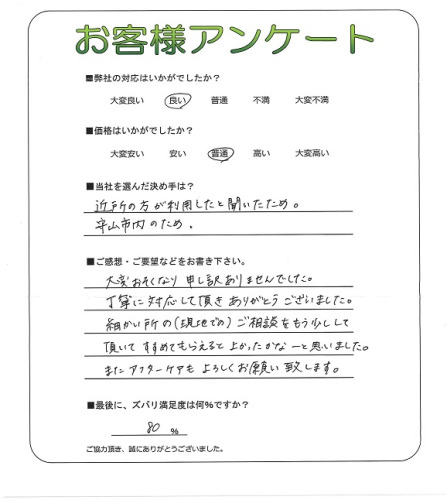 お客様アンケート
■弊社の対応はいかがでしたか?
大変良い 良い 普通 不満 大変不満
■価格はいかがでしたか?
大変安い 安い 普通 高い 大変高い
■当社を選んだ決め手は?
近所の方が利用したと聞いたため。
守山市内のため。
■ご感想・ご要望などをお書き下さい。
大変おそくなり申し訳ありませんでした。
丁寧に対応して頂きありがとうございました。
細かい所の(現地での)ご相談をもう少しして
頂いてすすめてもらえると上かったかなーと思いました。
またアフターケアもよろしくお願い致します。
■最後に、ズバリ満足度は何%ですか?
80 %
ご協力頂き、誠にありがとうございました。